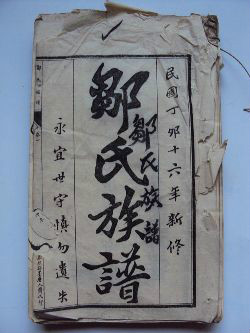 民國丁卯十六年新修
鄒氏族譜
鄒氏族譜
永宜世守慎勿遺失